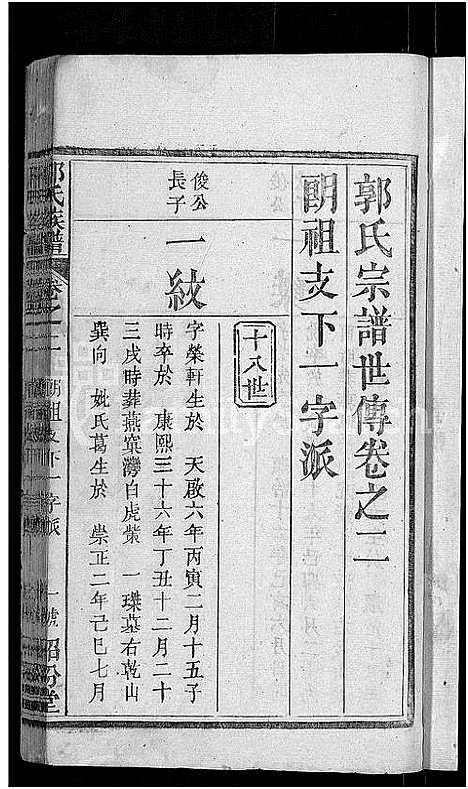 郭氏宗譜世傳卷之二
朝祖支下一字派
十八世
俊公
長子
一紋
字榮軒生於 天啟六年丙寅二月十五子
時卒於 康熙三十六年丁丑十二月二十
三戌時葬燕窠灣白虎柴 一璨墓右乾山
巽向 妣氏葛生於 崇正二年己巳七月
郭氏族譜
卷之二 朝祖支下一字派 一號